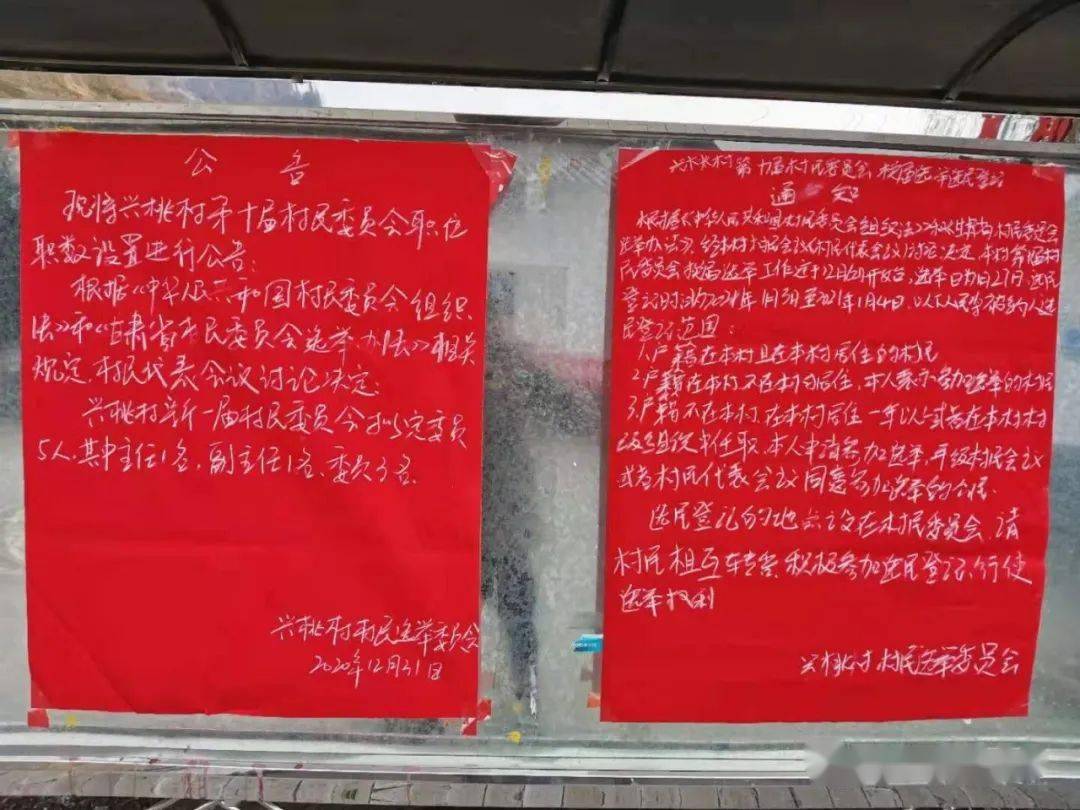 公告
现将兴桃村第十届村民委员会职位
职数设置进行公告：
根据《中华人民共和国村民委员会组织
法》和《甘肃省村民委员会选举办法》相关
规定，村民代表会议讨论决定：
兴桃村新一届村民委员会拟定委员
5人，其中主任1名，副主任1名，委员3名。
兴桃村村民选举委员会
2020年12月31日
第十届村民委员会换届选举选民登记
通知
根据《中华人民共和国村民委员会组织法》和《甘肃省村民委员会
选举办法》，经村民会议（村民代表会议）讨论决定，本村第十届村
民委员会换届选举工作近于12月 开始，选举日为 月27日，选民
登记时间为 年 月 日至2021年1月4日，以下人员 被 入选
民登记范围：
1.户籍在本村且在本村居住的村民
2.户籍在本村，不在本村居住，本人表示参加选举的村民
3.户籍不在本村，在本村居住一年以上或者在本村村
级组织中任职，本人申请参加选举，并经村民会议
或者村民代表会议同意参加选举的公民。
选民登记的地点设在村民委员会，请
村民相互转告，积极参加选民登记，行使
选举权利
兴桃村村民选举委员会